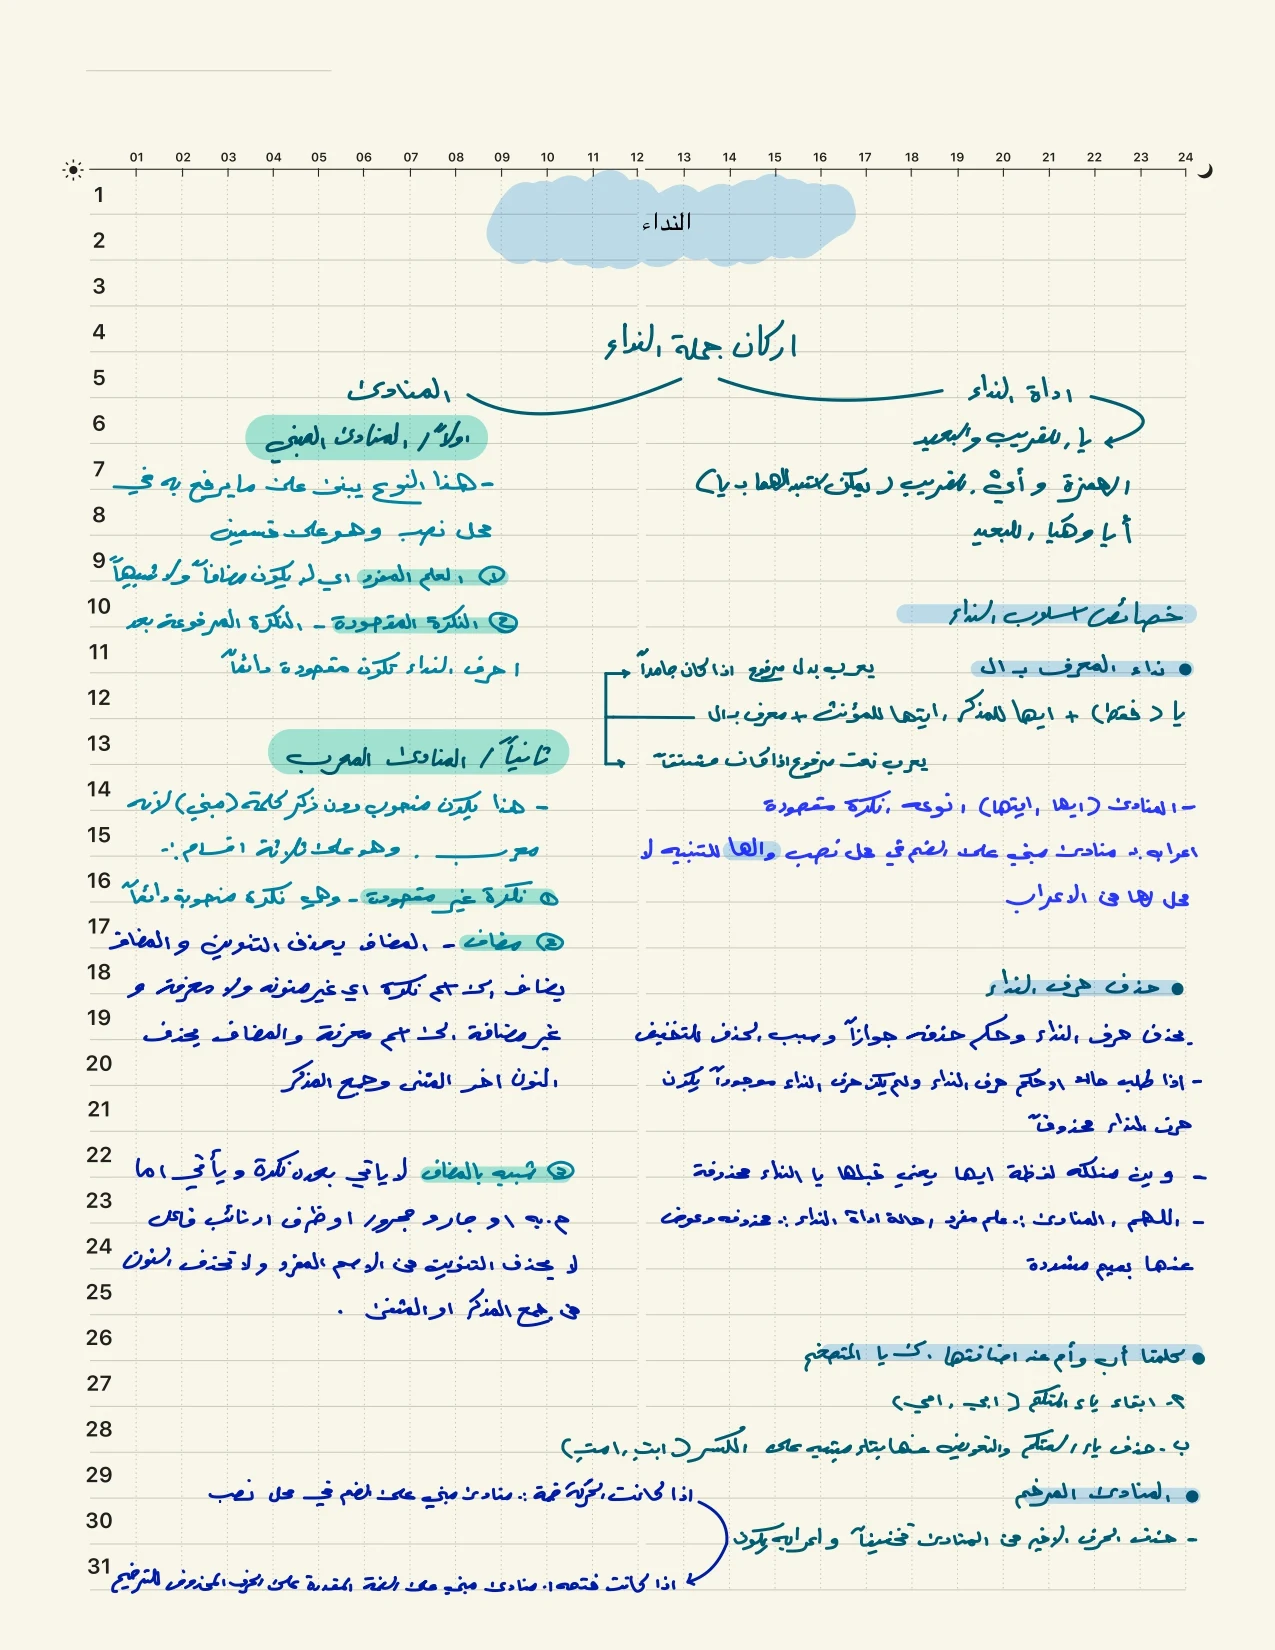 01 02 03 04 05 06 07 08 09 10 11 12 13 14 15 16 17 18 19 20 21 22 23 24
1
2
3
4
5
6
7
8
9
10
11
12
13
14
15
16
17
18
19
20
21
22
23
24
25
26
27
28
29
30
31
النداء
اركان جملة النداء
اداة النداء
يا، للقريب والبعيد
الهمزة و أيْ، للقريب (يمكن استبدالهما بـ يا)
أيا وهيا، للبعيد
خصائص اسلوب النداء
• نداء المعرف بـ ال
يعرب بدل مرفوع اذا كان جامداً
يا (فقط) + ايها للمذكر، ايتها للمؤنث + معرف بـ ال
يعرب نعت مرفوع اذا كان مشتقاً
- المنادى (ايها، ايتها) نوعه نكرة مقصودة
اعرابه منادى مبني على الضم في محل نصب والها للتنبيه لا
محل لها من الاعراب
• حذف حرف النداء
يحذف حرف النداء وحكم حذفه جوازاً وسبب الحذف للتخفيف
- اذا طلب حالة او حكم حرف النداء ولم يكن حرف النداء موجوداً يكون
حرف النداء محذوفاً
- وين منلكه لفظة ايها يعني قبلها يا النداء محذوفة
- اللهم، المنادى :. علم مفرد، حالة اداة النداء :. محذوفه وعوض
عنها بميم مشددة
• كلمتا أب وأم عند اضافتها الى يا المتكلم
أ- ابقاء ياء المتكلم (ابي، امي)
ب- حذف ياء المتكلم والتعويض عنها بتاء مبنيه على الكسر (ابتِ، امتِ)
• المنادى المرخم
- حذف الحرف الاخير من المنادى تخفيفاً و اعرابه يكون
اذا كانت الحركة ضمة :. منادى مبني على الضم في محل نصب
اذا كانت فتحه :. منادى مبني على الضمة المقدرة على الحرف المحذوف للترخيم
المنادى
اولاً / المنادى المبني
- هذا النوع يبنى على ما يرفع به في
محل نصب وهو على قسمين
① العلم المفرد اي لا يكون مضافاً ولا شبيهاً
② النكرة المقصودة - النكرة المرفوعة بعد
احرف النداء تكون مقصودة دائماً
ثانياً / المنادى المعرب
- هذا يكون منصوب دون ذكر كلمة (مبني) لأنه
معرب . وهو على ثلاثة اقسام :-
① نكرة غير مقصودة - وهي نكرة منصوبة دائماً
② مضاف - المضاف يحذف التنوين و المضاف
يضاف الى اسم نكرة اي غير منونه ولا معرفة و
غير مضافة الى اسم معرفة والمضاف يحذف
النون اخر المثنى وجمع المذكر
③ شبيه بالمضاف لا ياتي بعدن نكرة و يأتي اما
م. به او جار و مجرور او ظرف او نائب فاعل
لا يحذف التنوين من الاسم المفرد ولا تحذف النون
من جمع المذكر او المثنى .